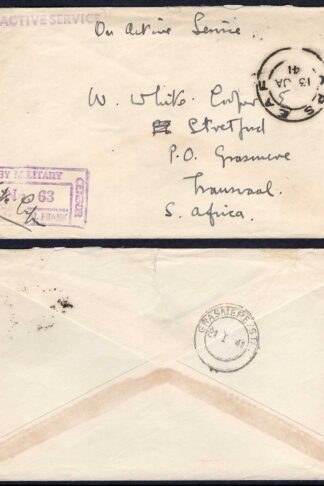 ACTIVE SERVICE
On Active Service
13 JA
41
W. White Cooper
Stretford
P.O. Grasmere
Transvaal
S. Africa.
BY MILITARY
CENSOR
63
FRANK
GRASMERE/S.T.
I
41